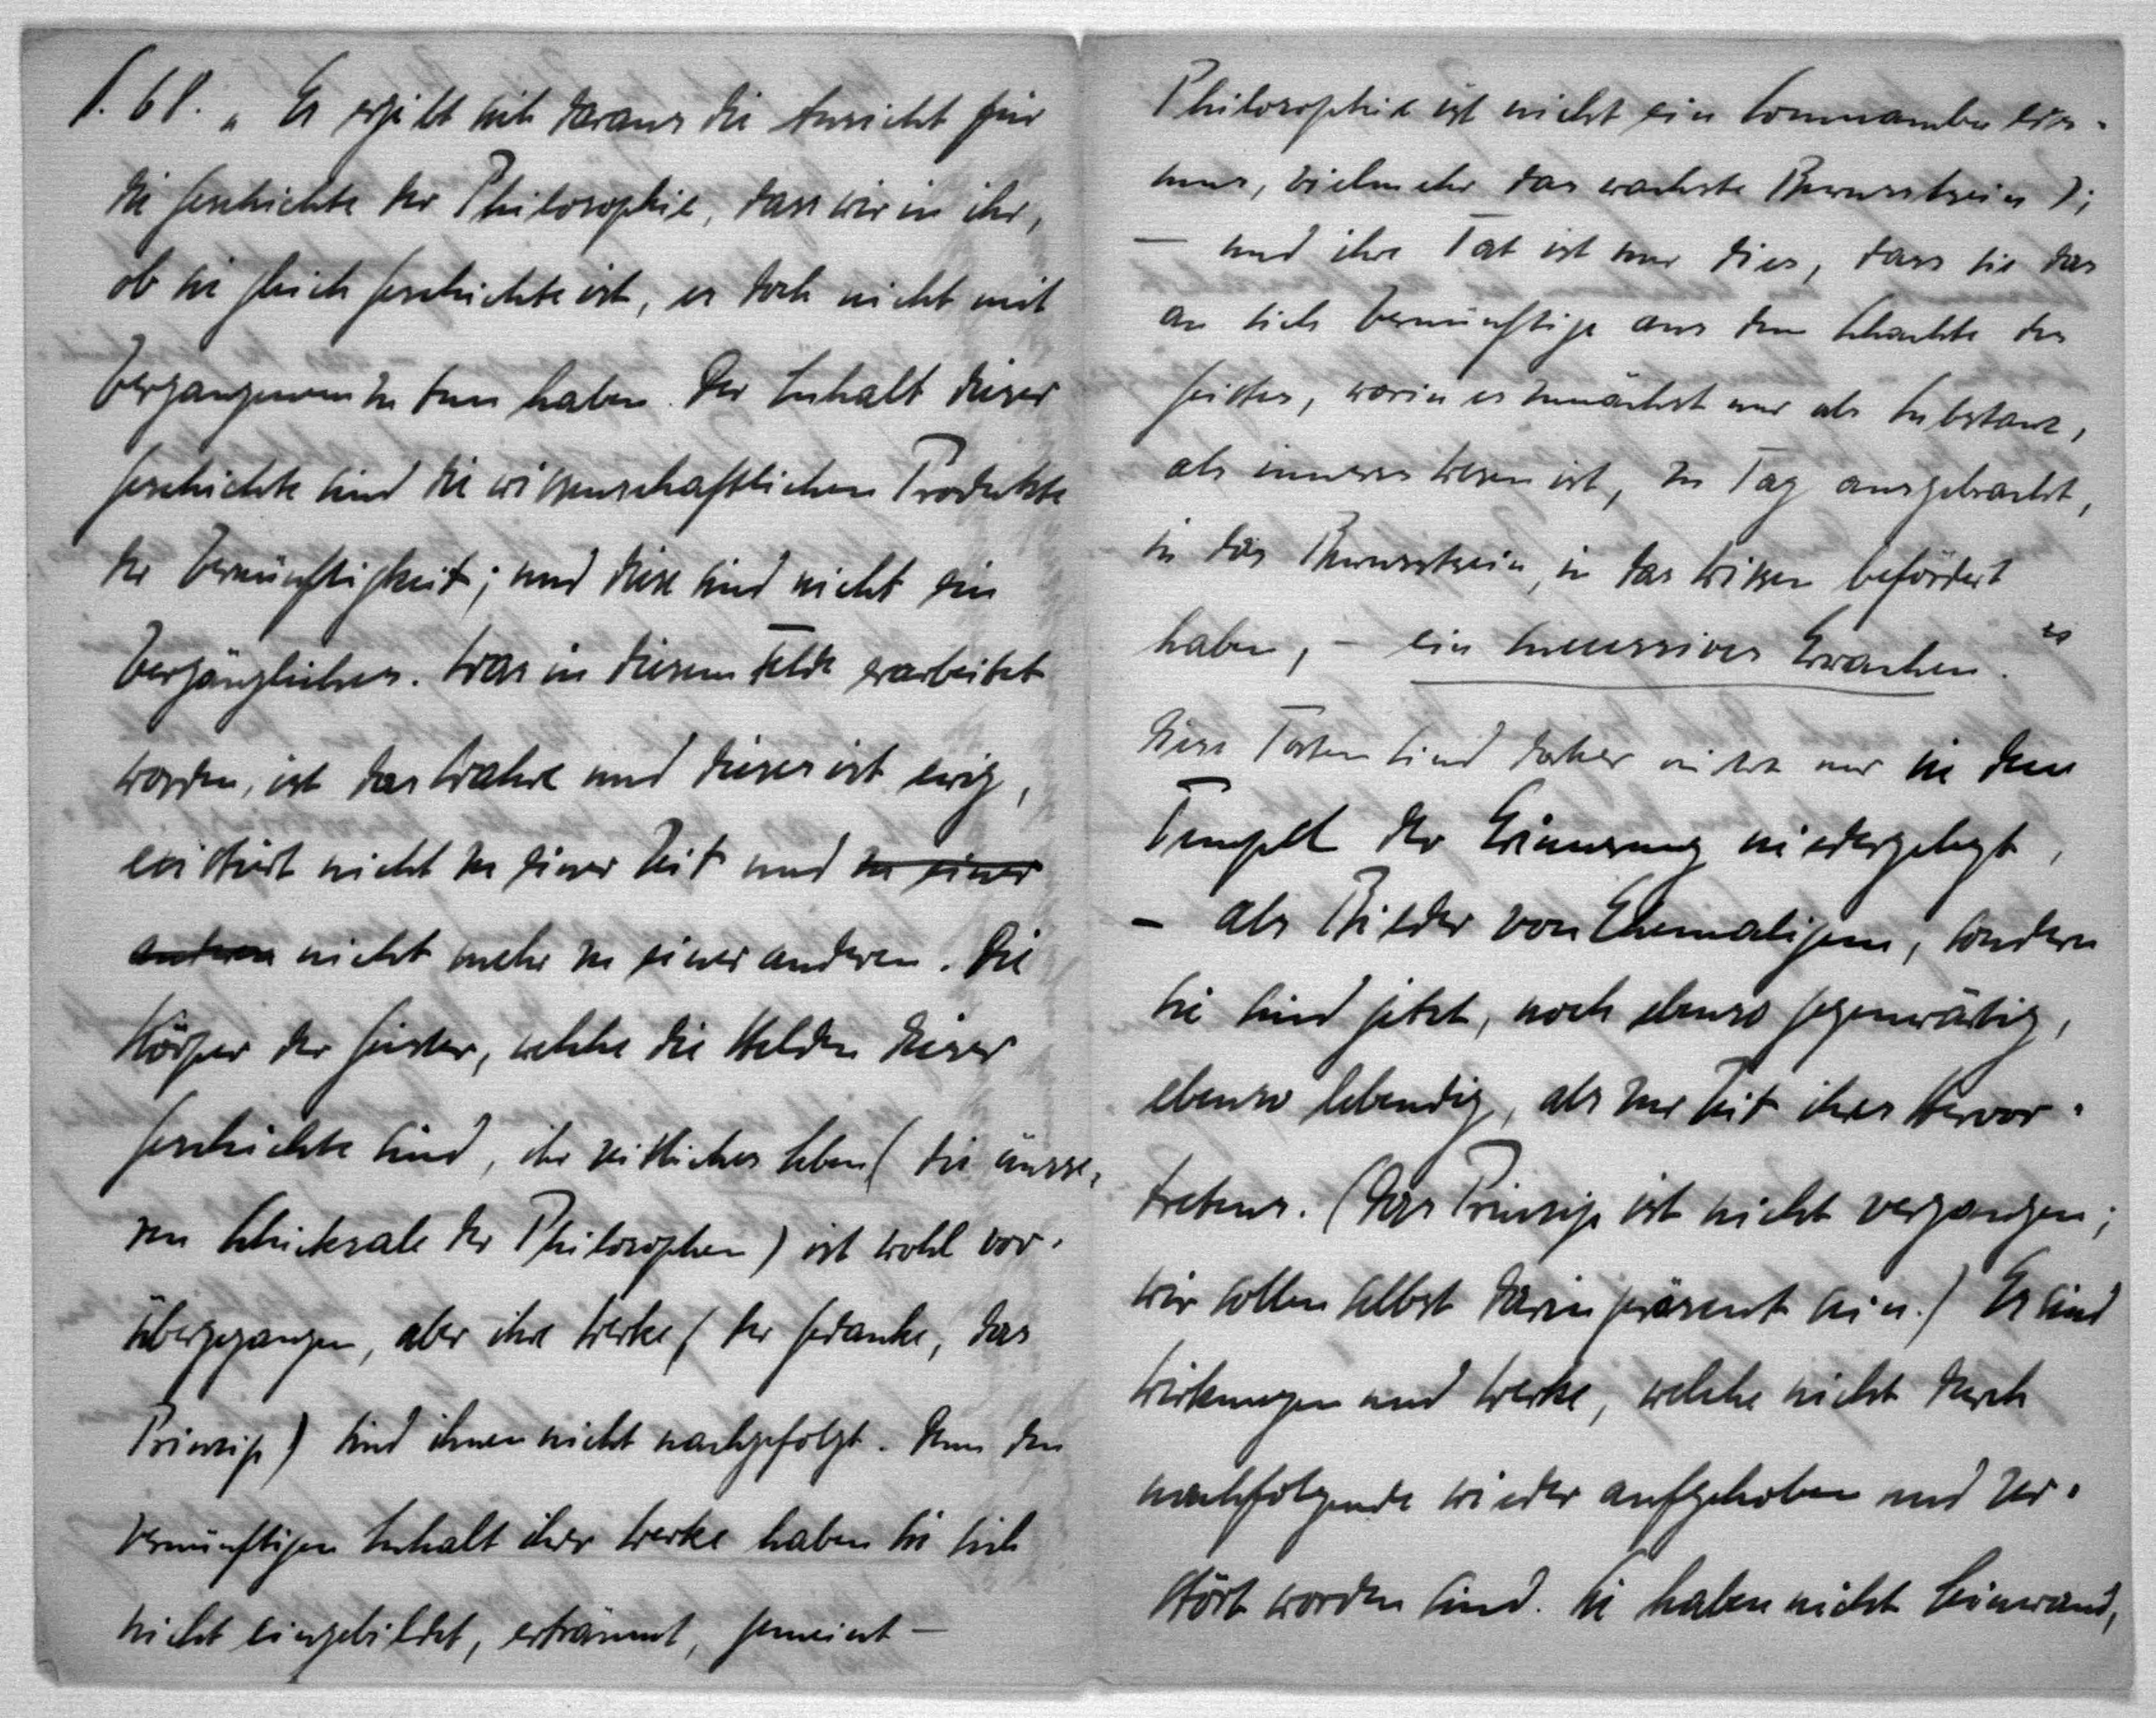 S. 68. „ Es ergibt sich daraus die Ansicht für
die Geschichte der Philosophie, dass wir in ihr,
ob sie gleich Geschichte ist, es doch nicht mit
Vergangenem zu tun haben. Der Inhalt dieser
Geschichte sind die wissenschaftlichen Produkte
der Vernünftigkeit; und diese sind nicht ein
Vergängliches. Was in diesem Felde erarbeitet
worden, ist das Wahre und dieses ist ewig,
existiert nicht zu einer Zeit und zu einer
anderen nicht mehr zu einer anderen. Die
Körper der Geister, welche die Helden dieser
Geschichte sind, ihr zeitliches Leben (die äusse-
ren Schicksale der Philosophen) ist wohl vor-
übergegangen, aber ihre Werke (der Gedanke, das
Prinzip) sind ihnen nicht nachgefolgt. Denn den
vernünftigen Inhalt ihrer Werke haben sie sich
nicht eingebildet, erträumt, gemeint –
Philosophie ist nicht ein Somnambulis-
mus, vielmehr das wachste Bewusstsein);
– und ihre Tat ist nur dies, dass sie das
an sich Vernünftige aus dem Schachte des
Geistes, worin es zunächst nur als Substanz,
als inneres Wesen ist, zu Tag ausgebracht,
in das Bewusstsein, in das Wissen befördert
haben, – ein successives Erwachen.
Diese Taten sind daher nicht nur in dem
Tempel der Erinnerung niedergelegt,
– als Bilder von Ehemaligem, sondern
sie sind jetzt, noch ebenso gegenwärtig,
ebenso lebendig, als zur Zeit ihres Hervor-
tretens. (Das Prinzip ist nicht vergangen;
wir sollen selbst darin präsent sein.) Es sind
Wirkungen und Werke, welche nicht durch
nachfolgende wieder aufgehoben und zer-
stört worden sind. Sie haben nicht Leinwand,